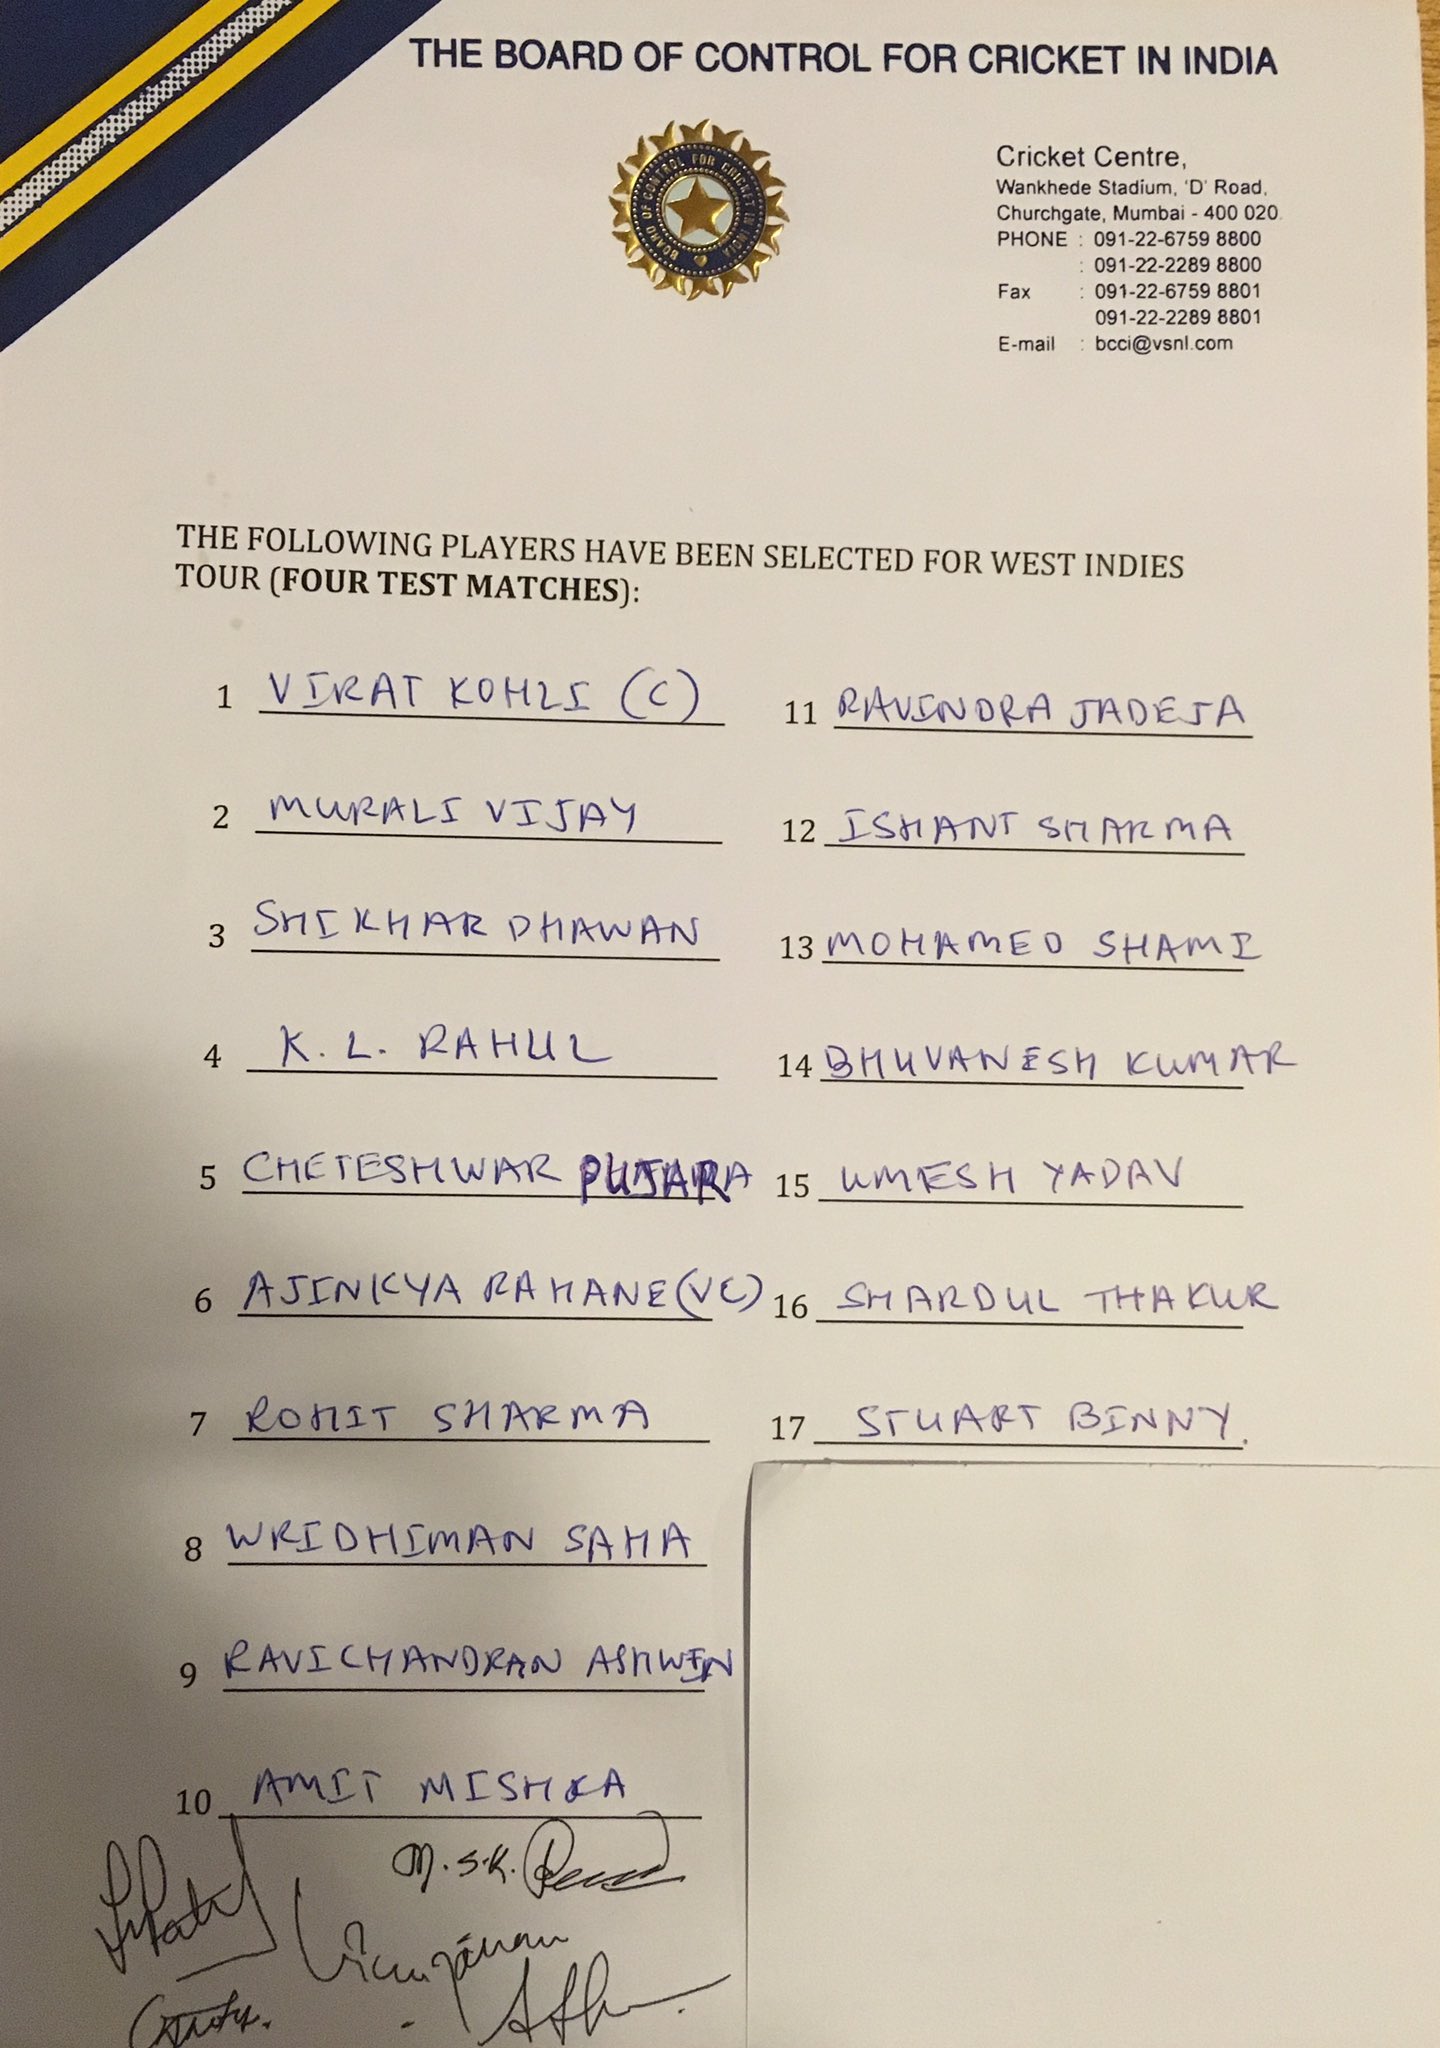 THE BOARD OF CONTROL FOR CRICKET IN INDIA
BOARD OF CONTROL FOR CRICKET IN INDIA
Cricket Centre,
Wankhede Stadium, 'D' Road,
Churchgate, Mumbai - 400 020.
PHONE : 091-22-6759 8800
: 091-22-2289 8800
Fax : 091-22-6759 8801
091-22-2289 8801
E-mail : bcci@vsnl.com
THE FOLLOWING PLAYERS HAVE BEEN SELECTED FOR WEST INDIES
TOUR (FOUR TEST MATCHES):
1 VIRAT KOHLI (C)
2 MURALI VIJAY
3 SHIKHAR DHAWAN
4 K. L. RAHUL
5 CHETESHWAR PUJARA
6 AJINKYA RAHANE (VC)
7 ROHIT SHARMA
8 WRIDHIMAN SAHA
9 RAVICHANDRAN ASHWIN
10 AMIT MISHRA
11 RAVINDRA JADEJA
12 ISHANT SHARMA
13 MOHAMED SHAMI
14 BHUVANESH KUMAR
15 UMESH YADAV
16 SHARDUL THAKUR
17 STUART BINNY.
M.S.K.